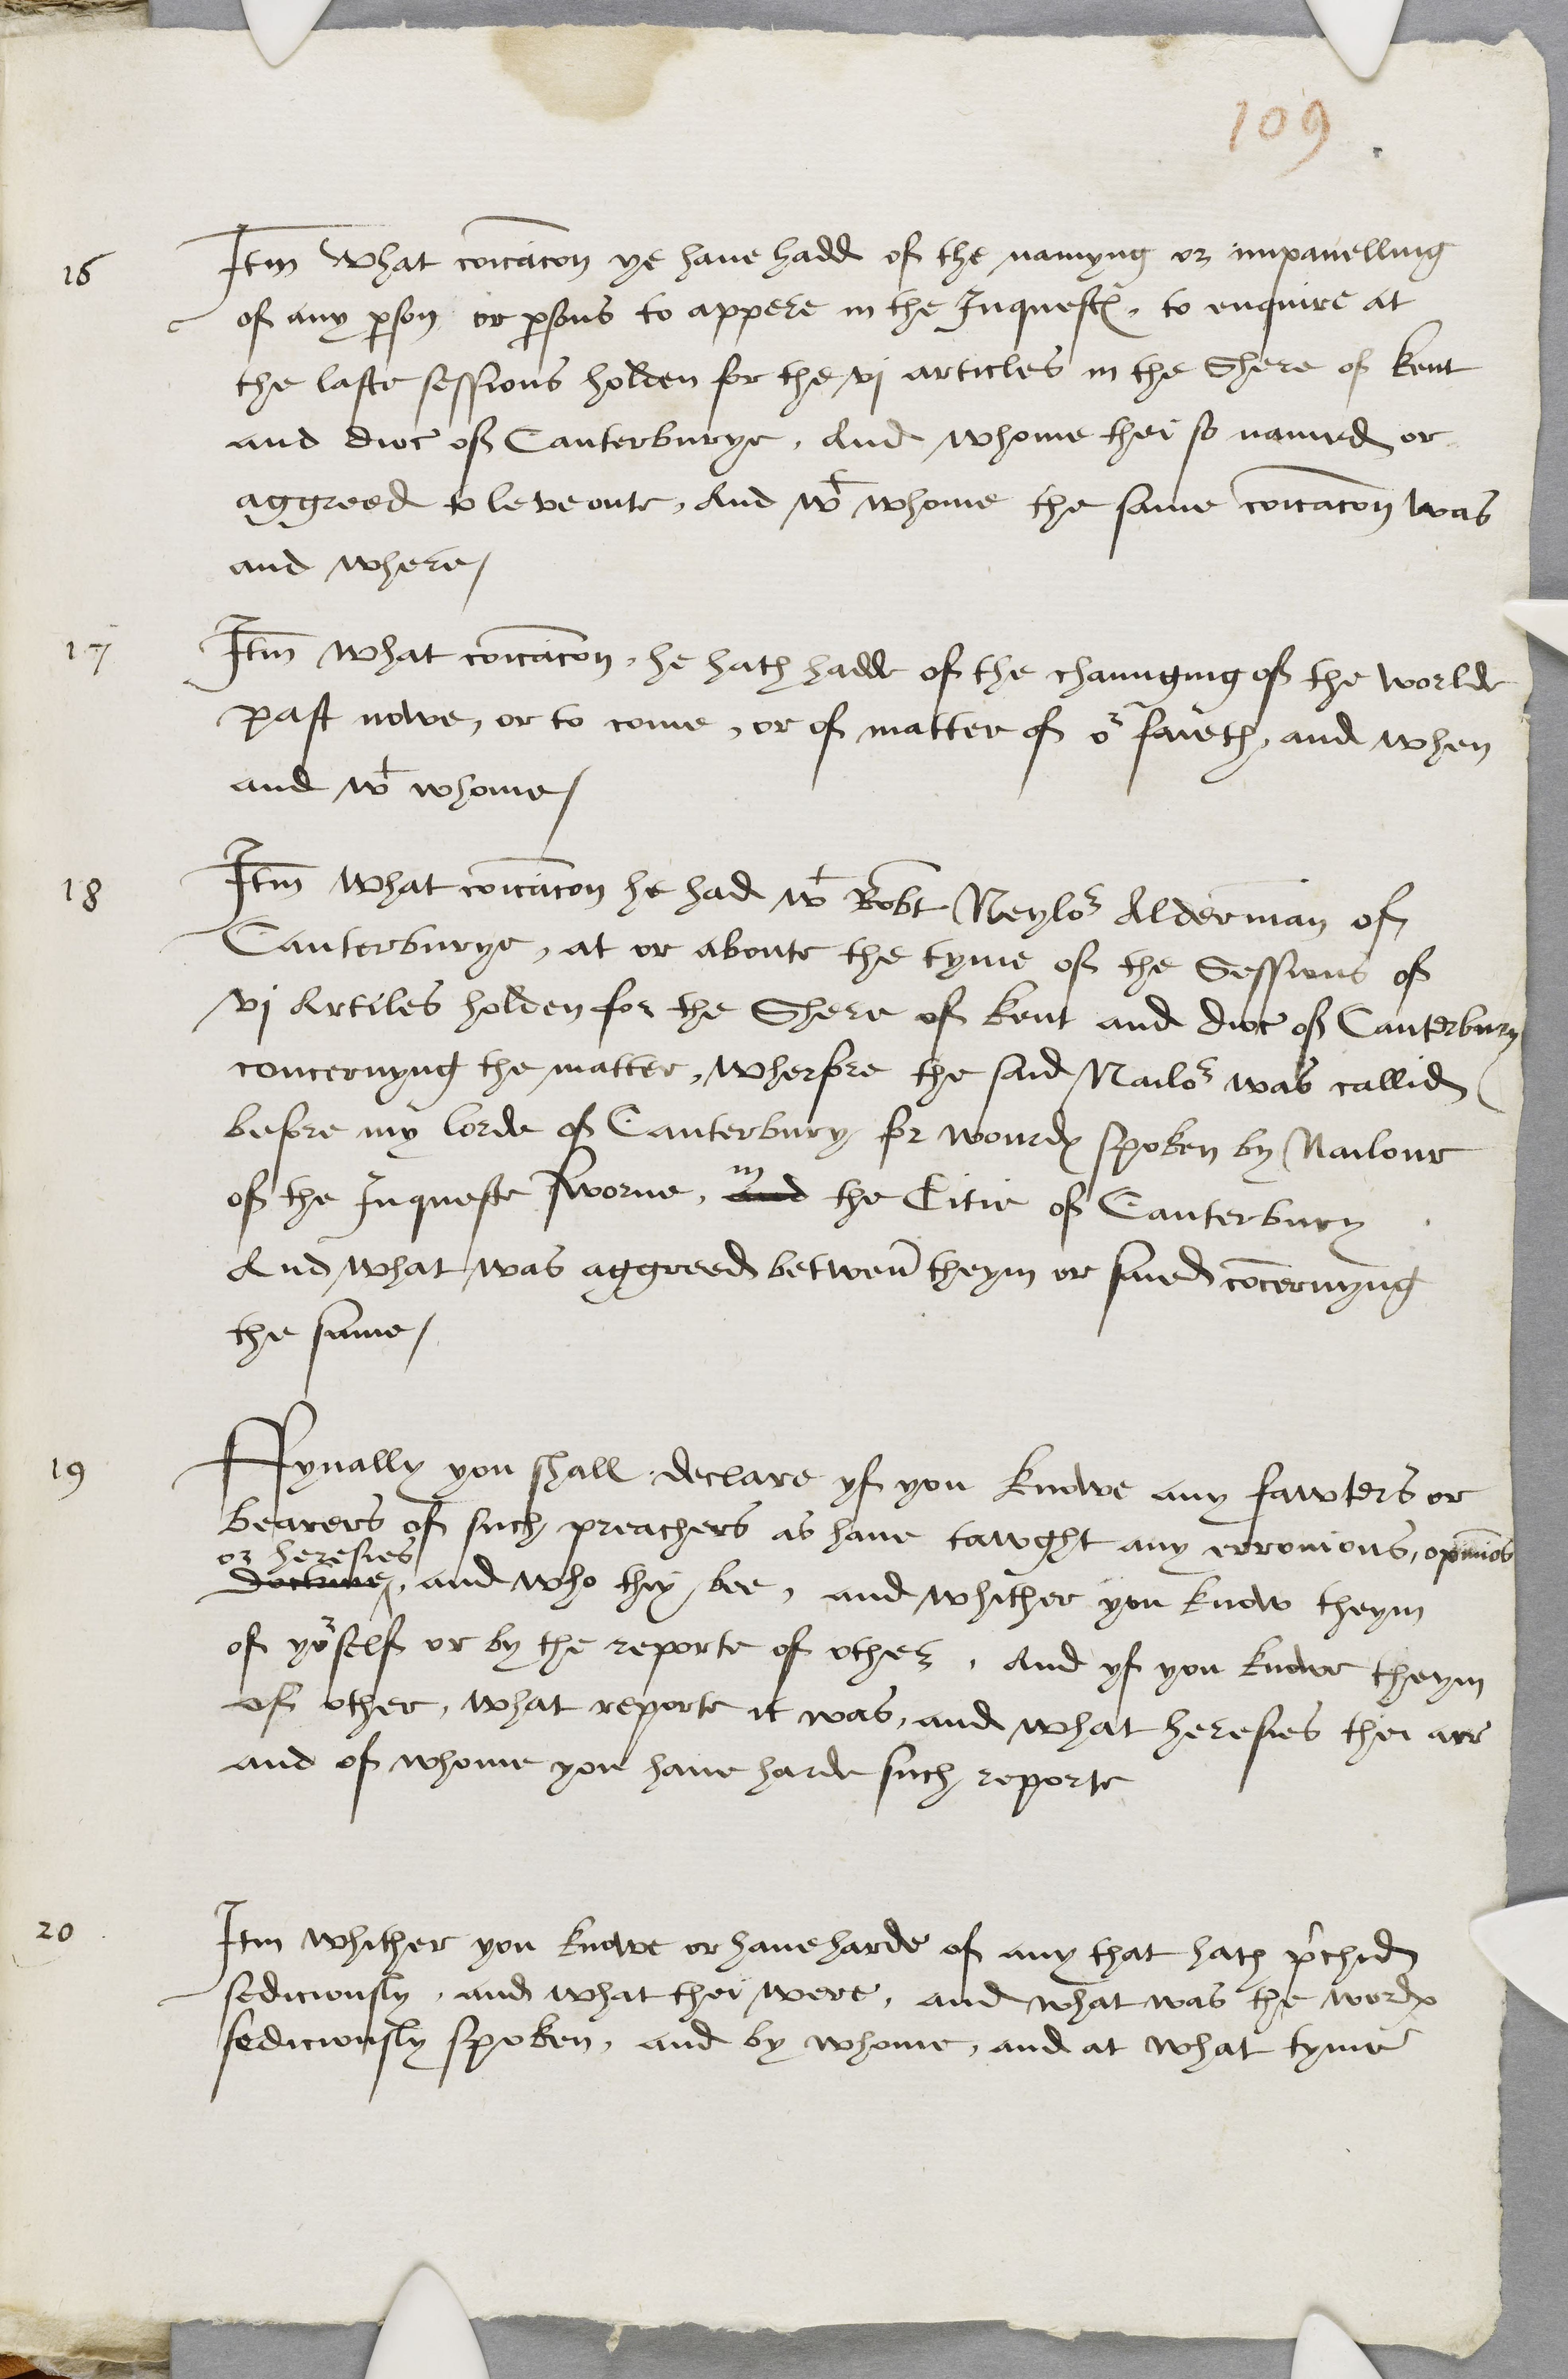 109
16 Itm What coicacon ye haue hadd of the namyng or impanelling
of any pson or psons to appere in the Inquest, to enquire at
the laste sessions holden for the vj articles in the Shere of kent
and dioc of Canterburye, And whome thei so named or
aggreed to leve oute, And wt whome the same coicacon was
and where/
17 Itm what coicacon, he hath hadde of the chaunging of the worlde
past nowe, or to come, or of matter of or faieth, and when
and wt whome/
18 Itm What coicacon he had wt Robt Neylor Alderman of
Canterburye, at or aboute the tyme of the Sessions of
vj Artiles holden for the Shere of kent and dioc of Canterbury
concernyng the matter, wherfore the said Nailor was callid
before my lorde of Canterbury for wourdes spoken by Nailour
of the Inqueste sworne, in
and the Citie of Canterbury
And what was aggreed betwen theym or saied concernyng
the same/
19 Fynally you shall declare yf you knowe any fawters or
bearers of such preachers as haue tawght any erronious, opinios
or heresies
doctrine, and who thei bee, and whither you know theym
of yorself or by the reporte of other, And yf you knowe theym
of other, what reporte it was, and what heresies thei are
and of whome you haue harde such reporte
20 Itm whither you knowe or haue harde of any that hath pchid
sediciously, and what thei were, and what was the wordes
sediciously spoken, and by whome, and at what tyme